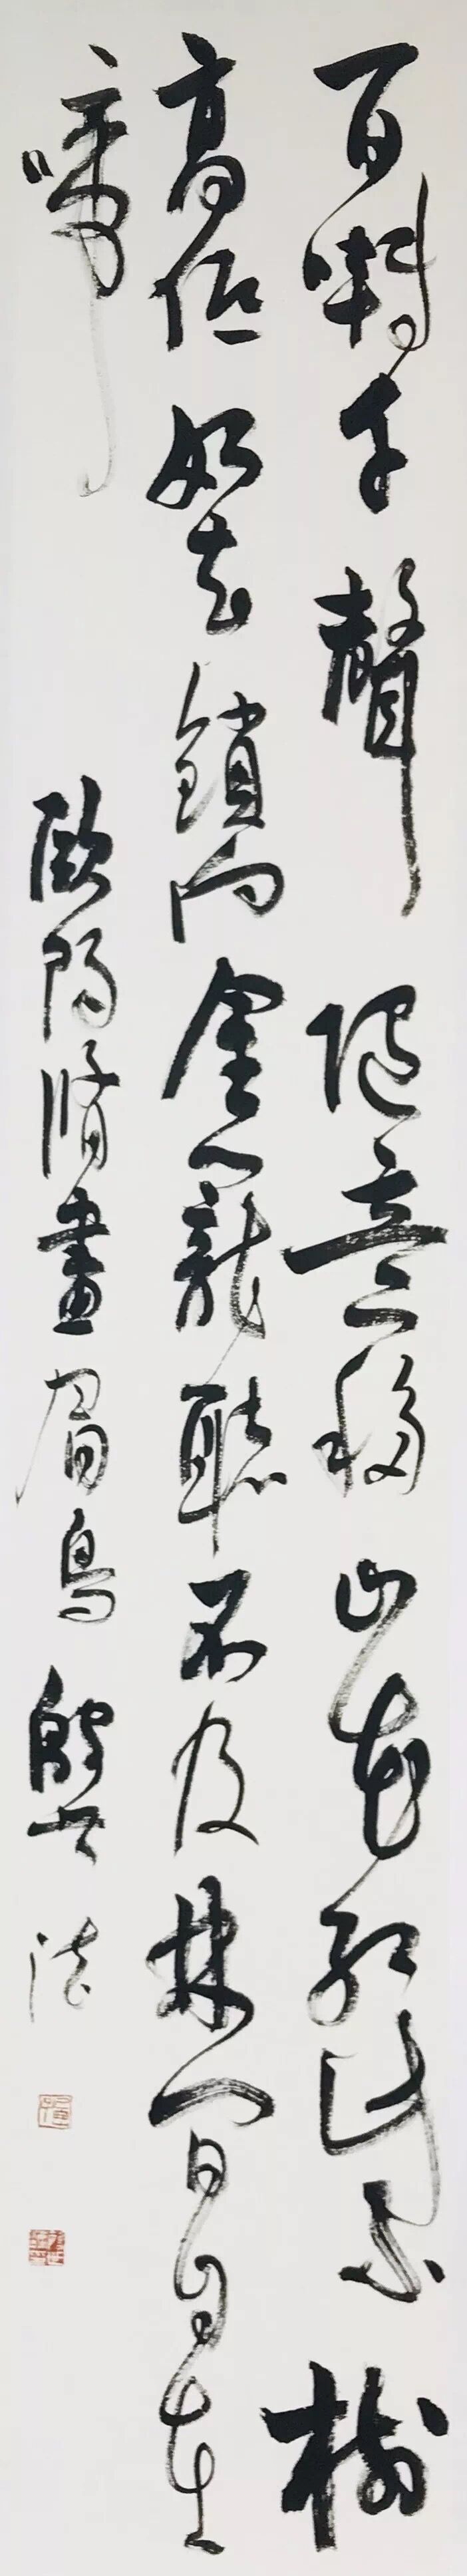 百囀千聲隨意移山花紅紫樹
高低始知鎖向金籠聽不及林間自在
啼
歐陽脩畫眉鳥